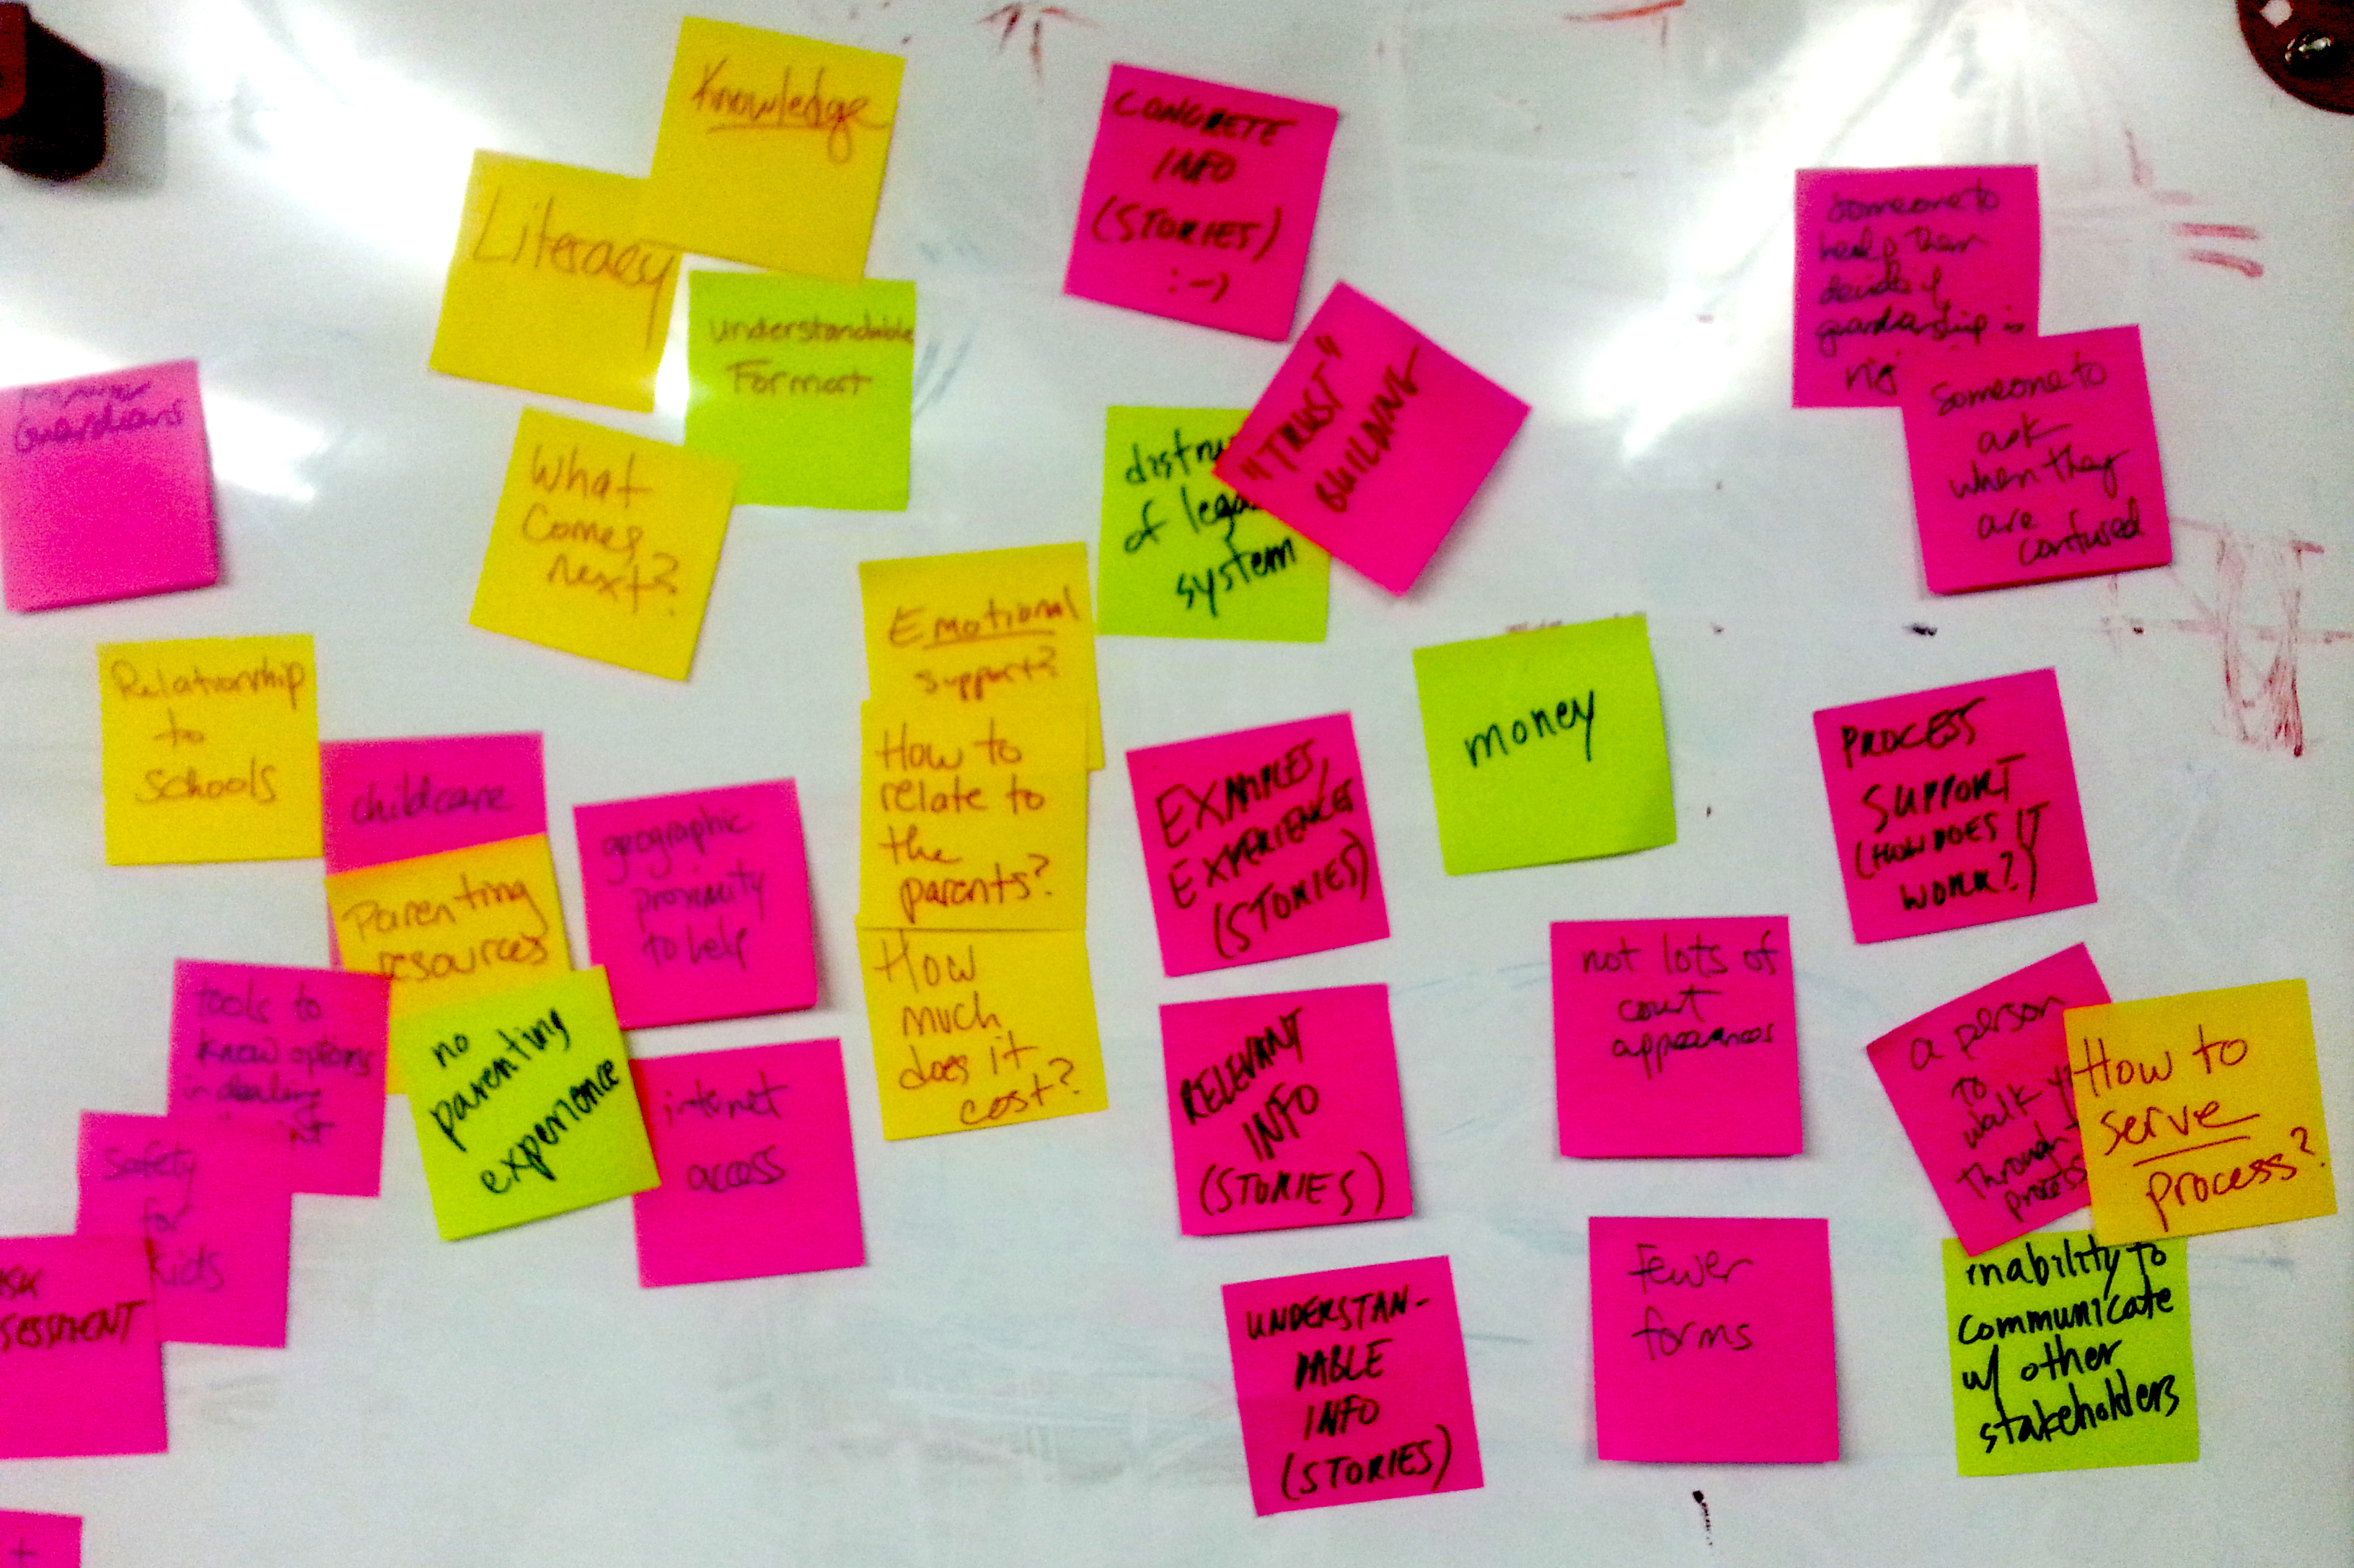 Knowledge
Literacy
Understandable
Format
What
Comes
next?
CONCRETE
INFO
(STORIES)
:-)
"TRUST"
BUILDING
of
system
Someone to
help them
decide if
guardianship is
Someone to
ask
when they
are
confused
Guardians
Relationship
to
schools
childcare
Parenting
resources
geographic
proximity
to help
tools to
know options
in dealing
no
parenting
experience
internet
access
Safety
for
kids
Emotional
support?
How to
relate to
the
parents?
How
much
does it
cost?
EXAMPLES,
EXPERIENCES
(STORIES)
RELEVANT
INFO
(STORIES)
UNDERSTAN-
DABLE
INFO
(STORIES)
money
not lots of
court
appearances
fewer
forms
PROCESS
SUPPORT
(HOW DOES IT
WORK?)
a person
to
walk
through
process
How to
serve
process?
inability to
communicate
w/ other
stakeholders